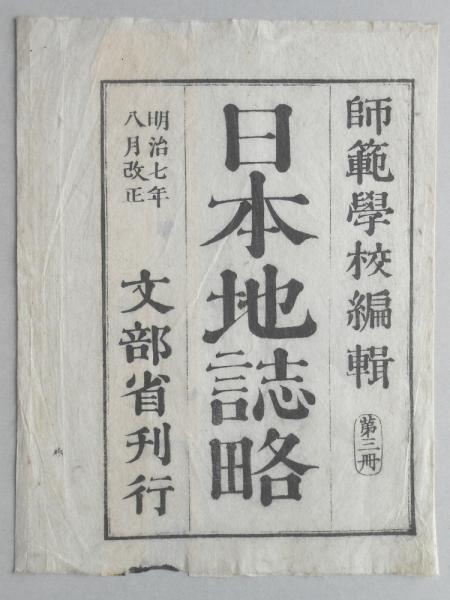 師範學校編輯
第三冊
日本地誌略
明治七年
八月改正
文部省刊行